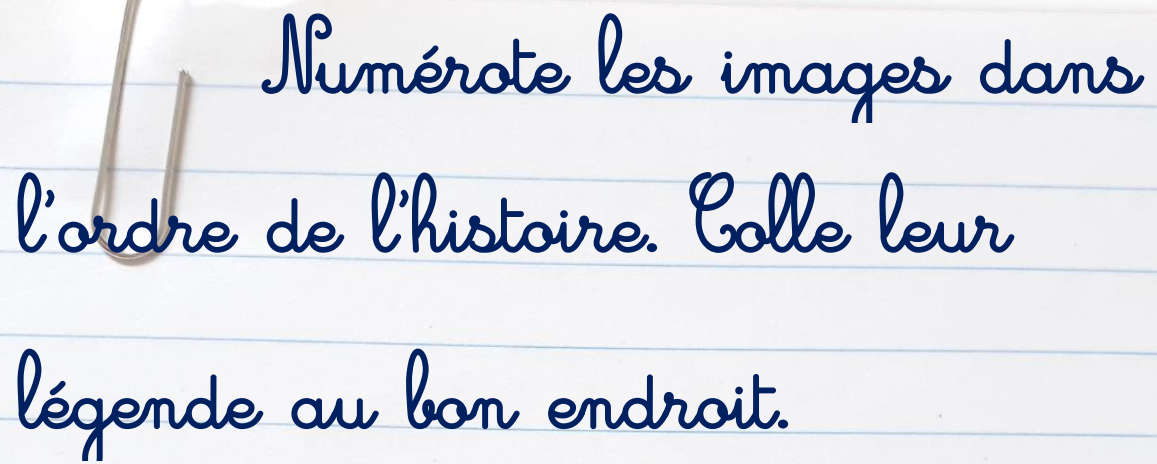 Numérote les images dans
l'ordre de l'histoire. Colle leur
légende au bon endroit.